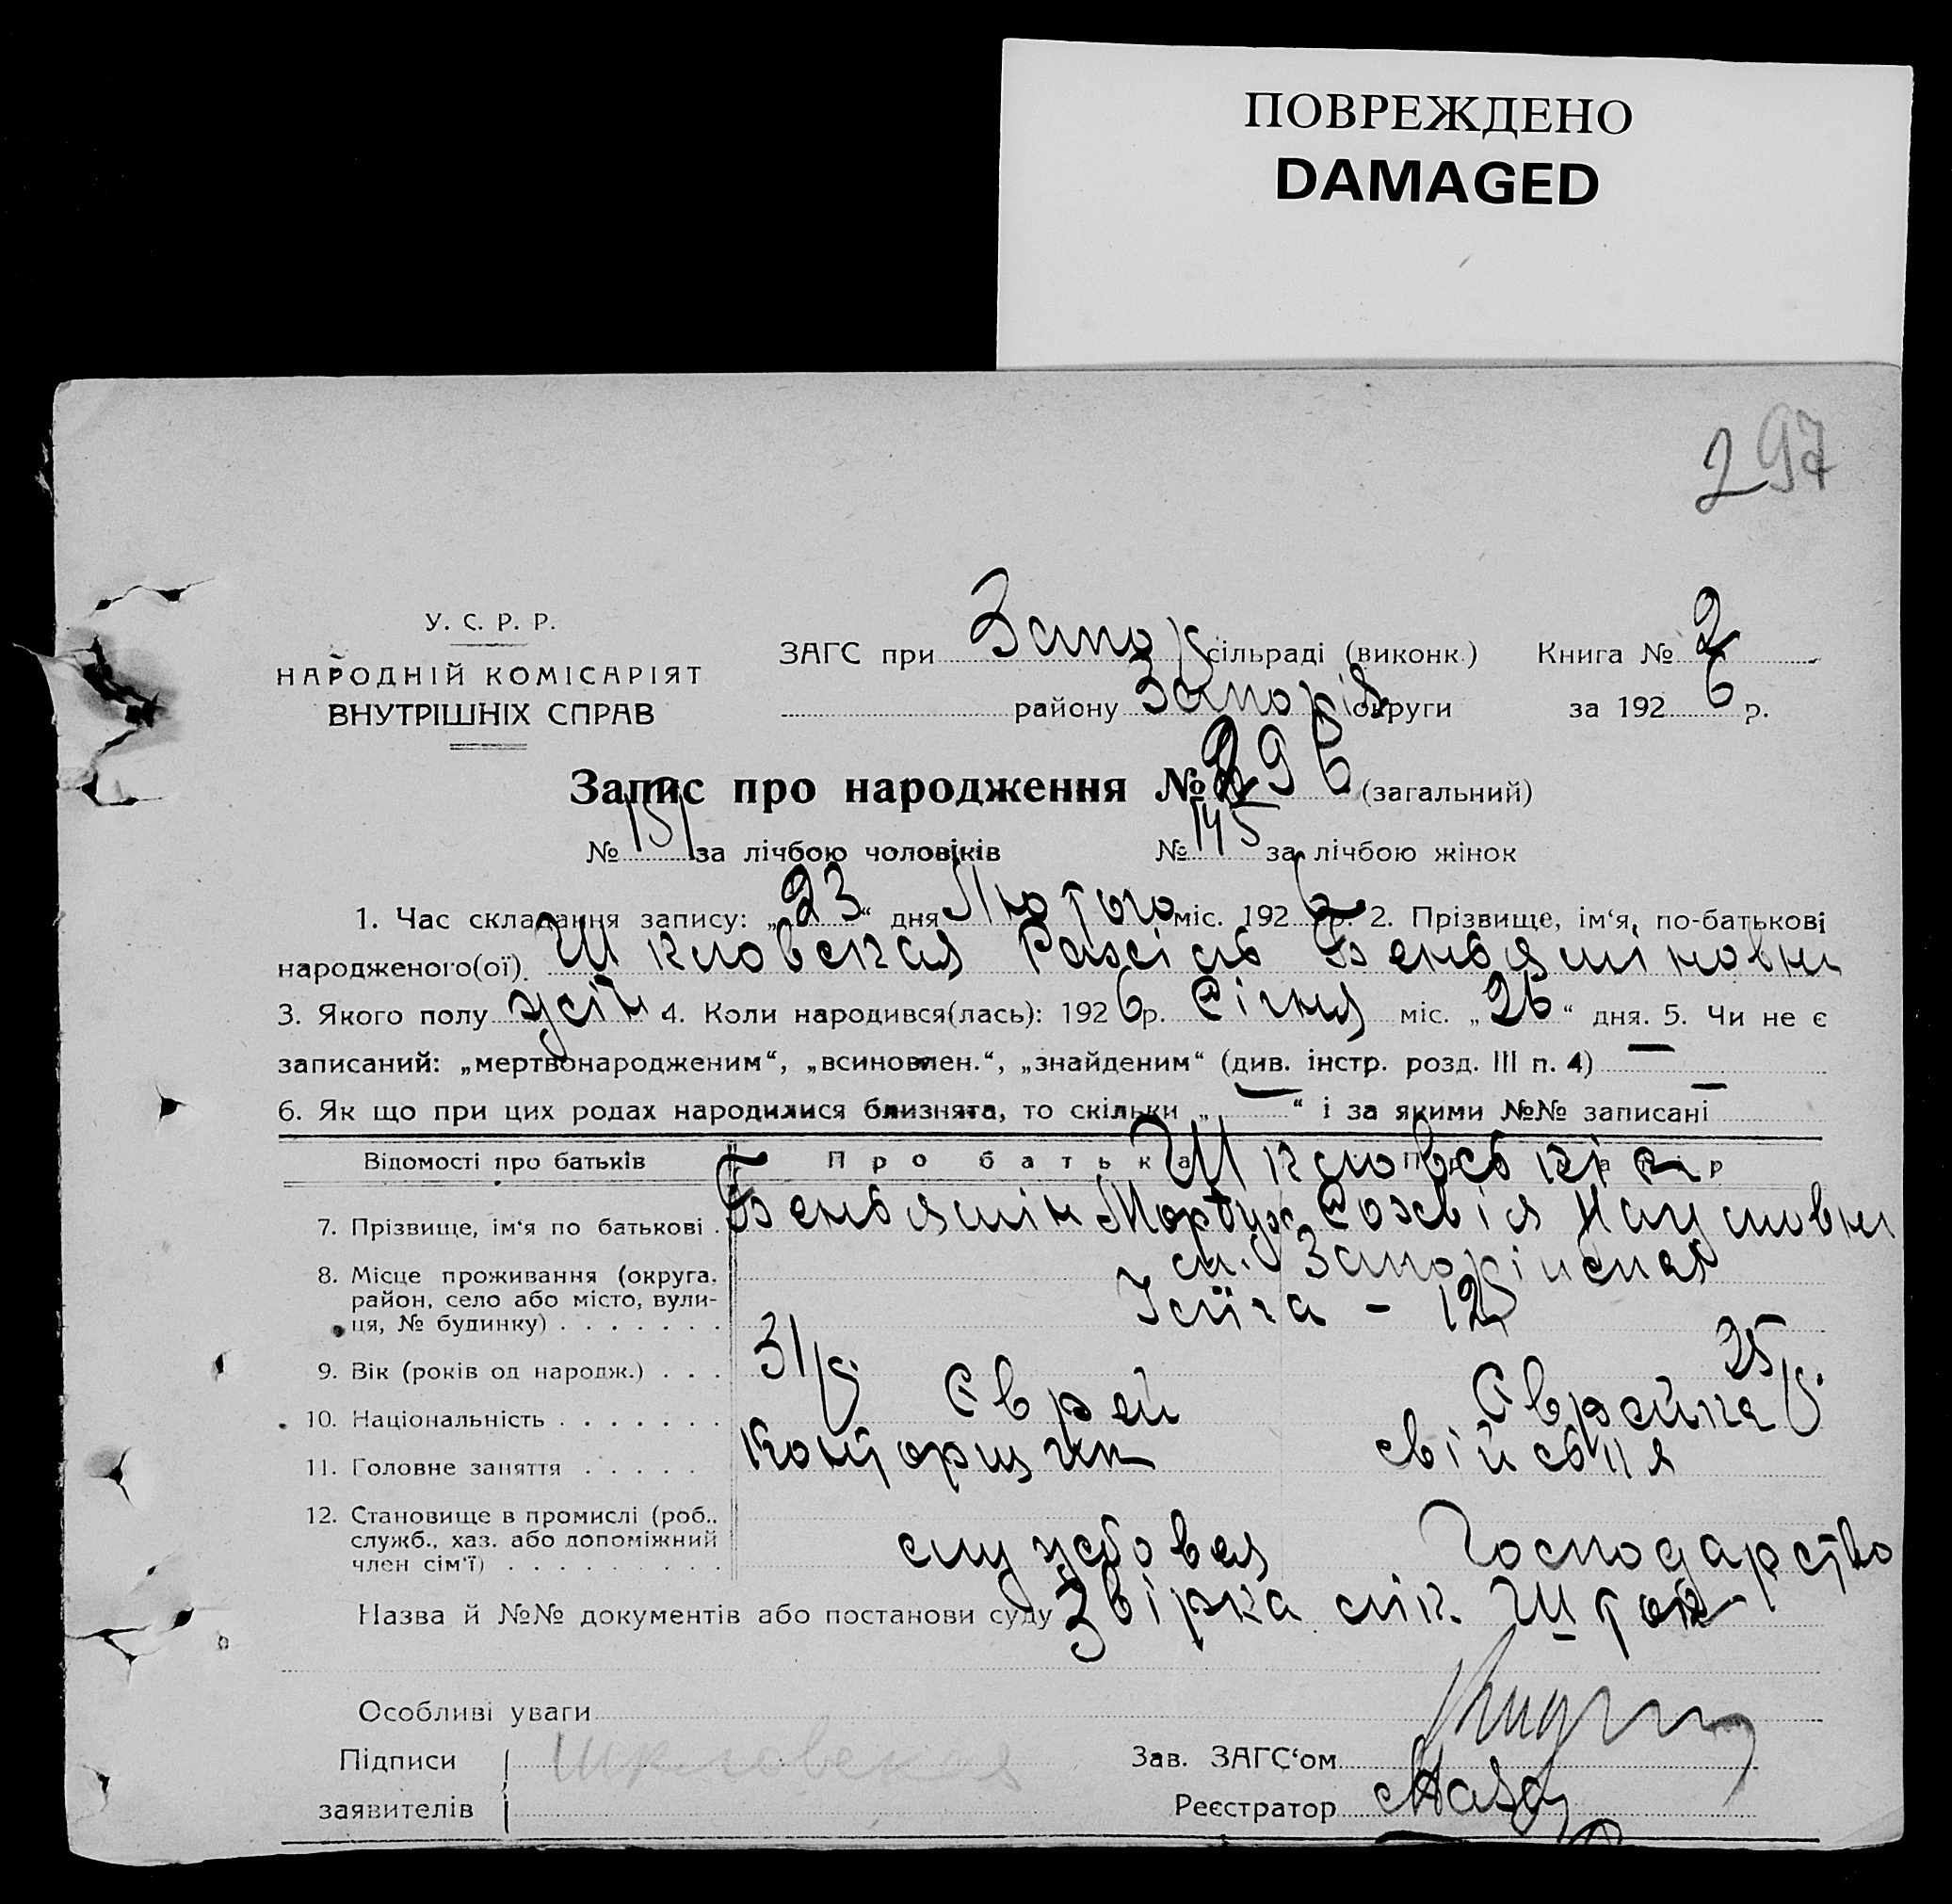 ПОВРЕЖДЕНО
DAMAGED
297
У. С. Р. Р.
НАРОДНІЙ КОМІСАРІЯТ
ВНУТРІШНІХ СПРАВ
ЗАГС при Запор сільраді (виконк.) Книга № 2
району Запоріз округи за 1926 р.
Запис про народження № 296 (загальний)
№ 151 за лічбою чоловіків № 145 за лічбою жінок
1. Час складання запису: „23“ дня Лютого міс. 1926 р. 2. Прізвище, ім‘я, по-батькові
народженого(ої). Шкловская Рахіль Беньяміновна
3. Якого полу жін 4. Коли народився(лась): 1926 р. Січня міс. „26“ дня. 5. Чи не є
записаний: „мертвонародженим“, „всиновлен.“, „знайденим“ (див. інстр. розд. III п. 4) —
6. Як що при цих родах народилися близнята, то скільки „—“ і за якими №№ записані —
Відомості про батьків Про батька
Шкловські
7. Прізвище, ім‘я по батькові Беньямін Мордух Софія Наумовна
8. Місце проживання (округа, район, село або місто, вулиця, № будинку) м. Запоріжжя
12
9. Вік (років од народж.) 31 р. 25 р.
10. Національність Єврей Єврейка
11. Головне заняття Конторщик свійське
12. Становище в промислі (роб., служб., хаз. або допоміжний член сім‘ї) службовец Господарство
Назва й №№ документів або постанови суду Звірка лік. Шток
Особливі уваги
Підписи заявителів Шкловская
Зав. ЗАГС‘ом
Реєстратор